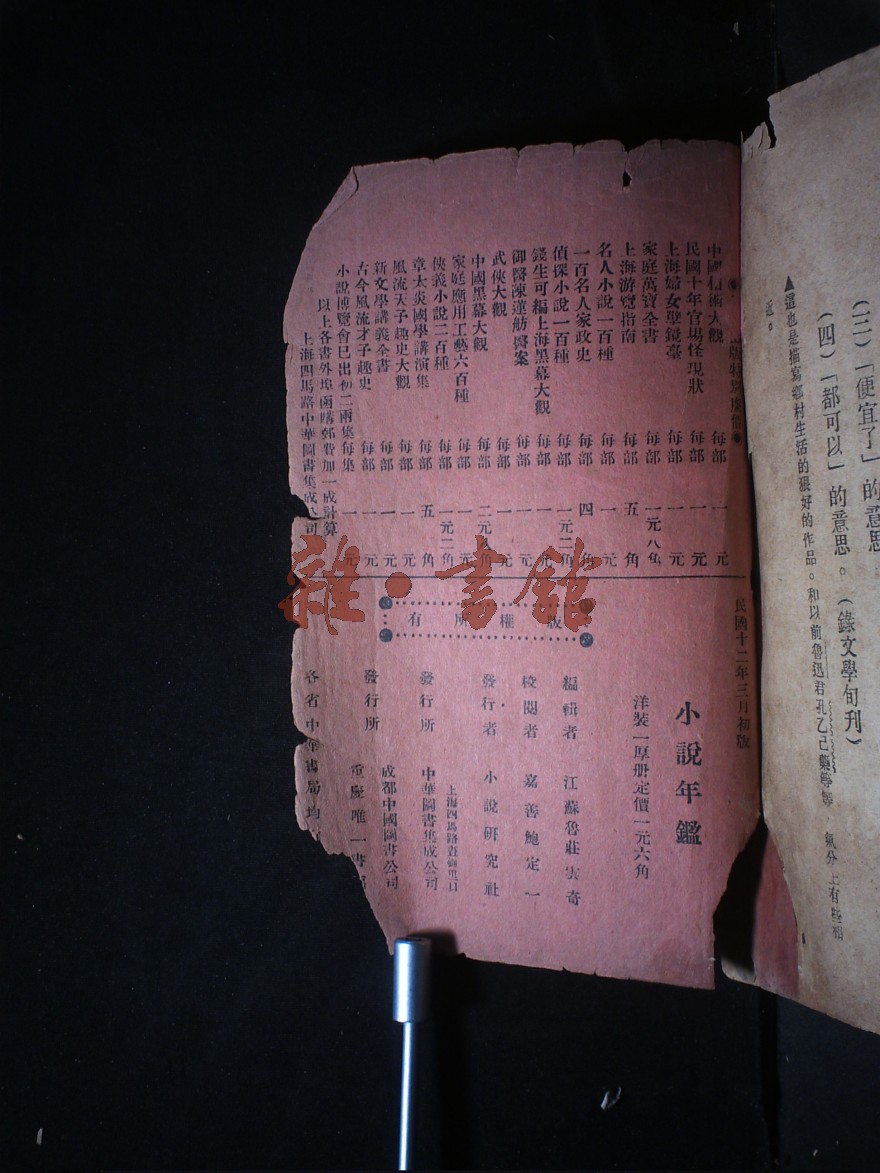 (三)「便宜了」的意思
(四)「都可以」的意思。(錄文學旬刊)
▲還也是描寫鄉村生活的狠好的作品。和以前魯迅君孔乙己藥等等 氣分上有些相
近。
中國 術大觀 每部 一元
民國十年官場怪現狀 每部 一元
上海婦女孽鏡臺 每部 一元
家庭萬寶全書 每部 一元八角
上海游覽指南 每部 五角
名人小說一百種 每部 一元
一百名人家政史 每部 四角
偵探小說一百種 每部 一元二角
錢生可編上海黑幕大觀 每部 一元
御醫陳蓮舫醫案 每部 一元
武俠大觀 每部 一元
中國黑幕大觀 每部 二元 角
家庭應用工藝六百種 每部 一元
俠義小說二百種 每部 一元二角
章太炎國學講演集 每部 五角
風流天子趣史大觀 每部 一元
新文學講義全書 每部 一元
古今風流才子趣史 每部 一元
小說博覽會已出初二兩集 每集 一元
以上各書外埠函購郵費加一成計算
上海四馬路中華圖書集成公司
民國十二年三月初版
小說年鑑
洋裝一厚册定價一元六角
編輯者 江蘇魯莊雲奇
校閱者 嘉善鮑定一
發行者 小說研究社
上海四馬路 口
發行所 中華圖書集成公司
成都中國圖書公司
發行所
重慶唯一書
各省中華書局均
版權所有
雜·書館